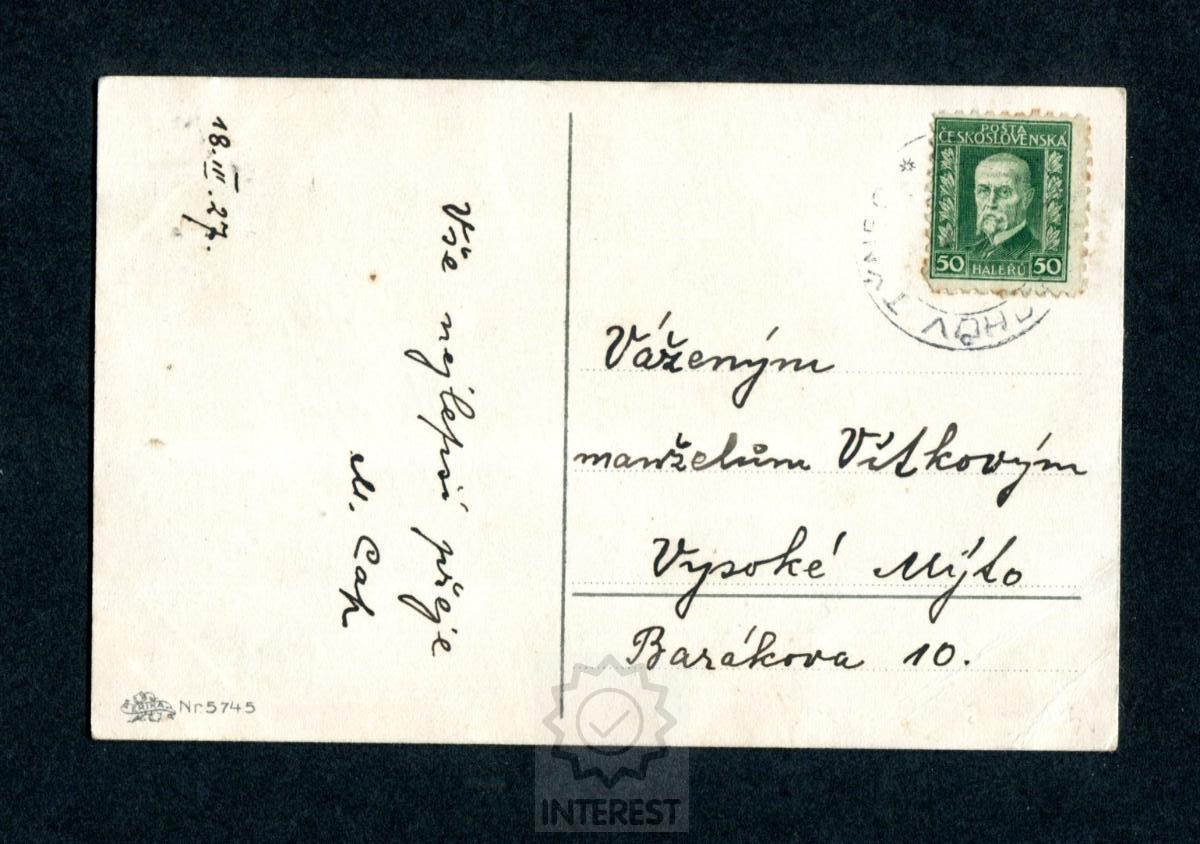 18.III.27.
Vše nejlepší přeje
M. Cap
POŠTA
ČESKOSLOVENSKA
50 HALÉŘŮ 50
TÝNEC
Váženým
manželům Vítkovým
Vysoké Mýto
Barákova 10.
ERIKA
Nr. 5745
INTEREST